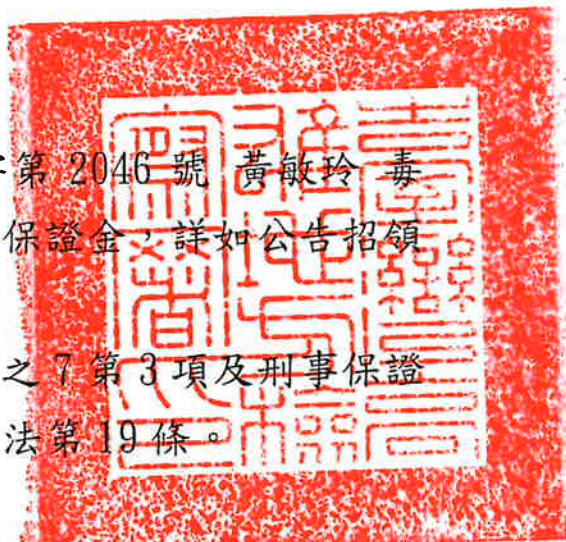 第 2046 號 黃敏玲 毒
保證金，詳如公告招領
之 7 第 3 項及刑事保證
法第 19 條。